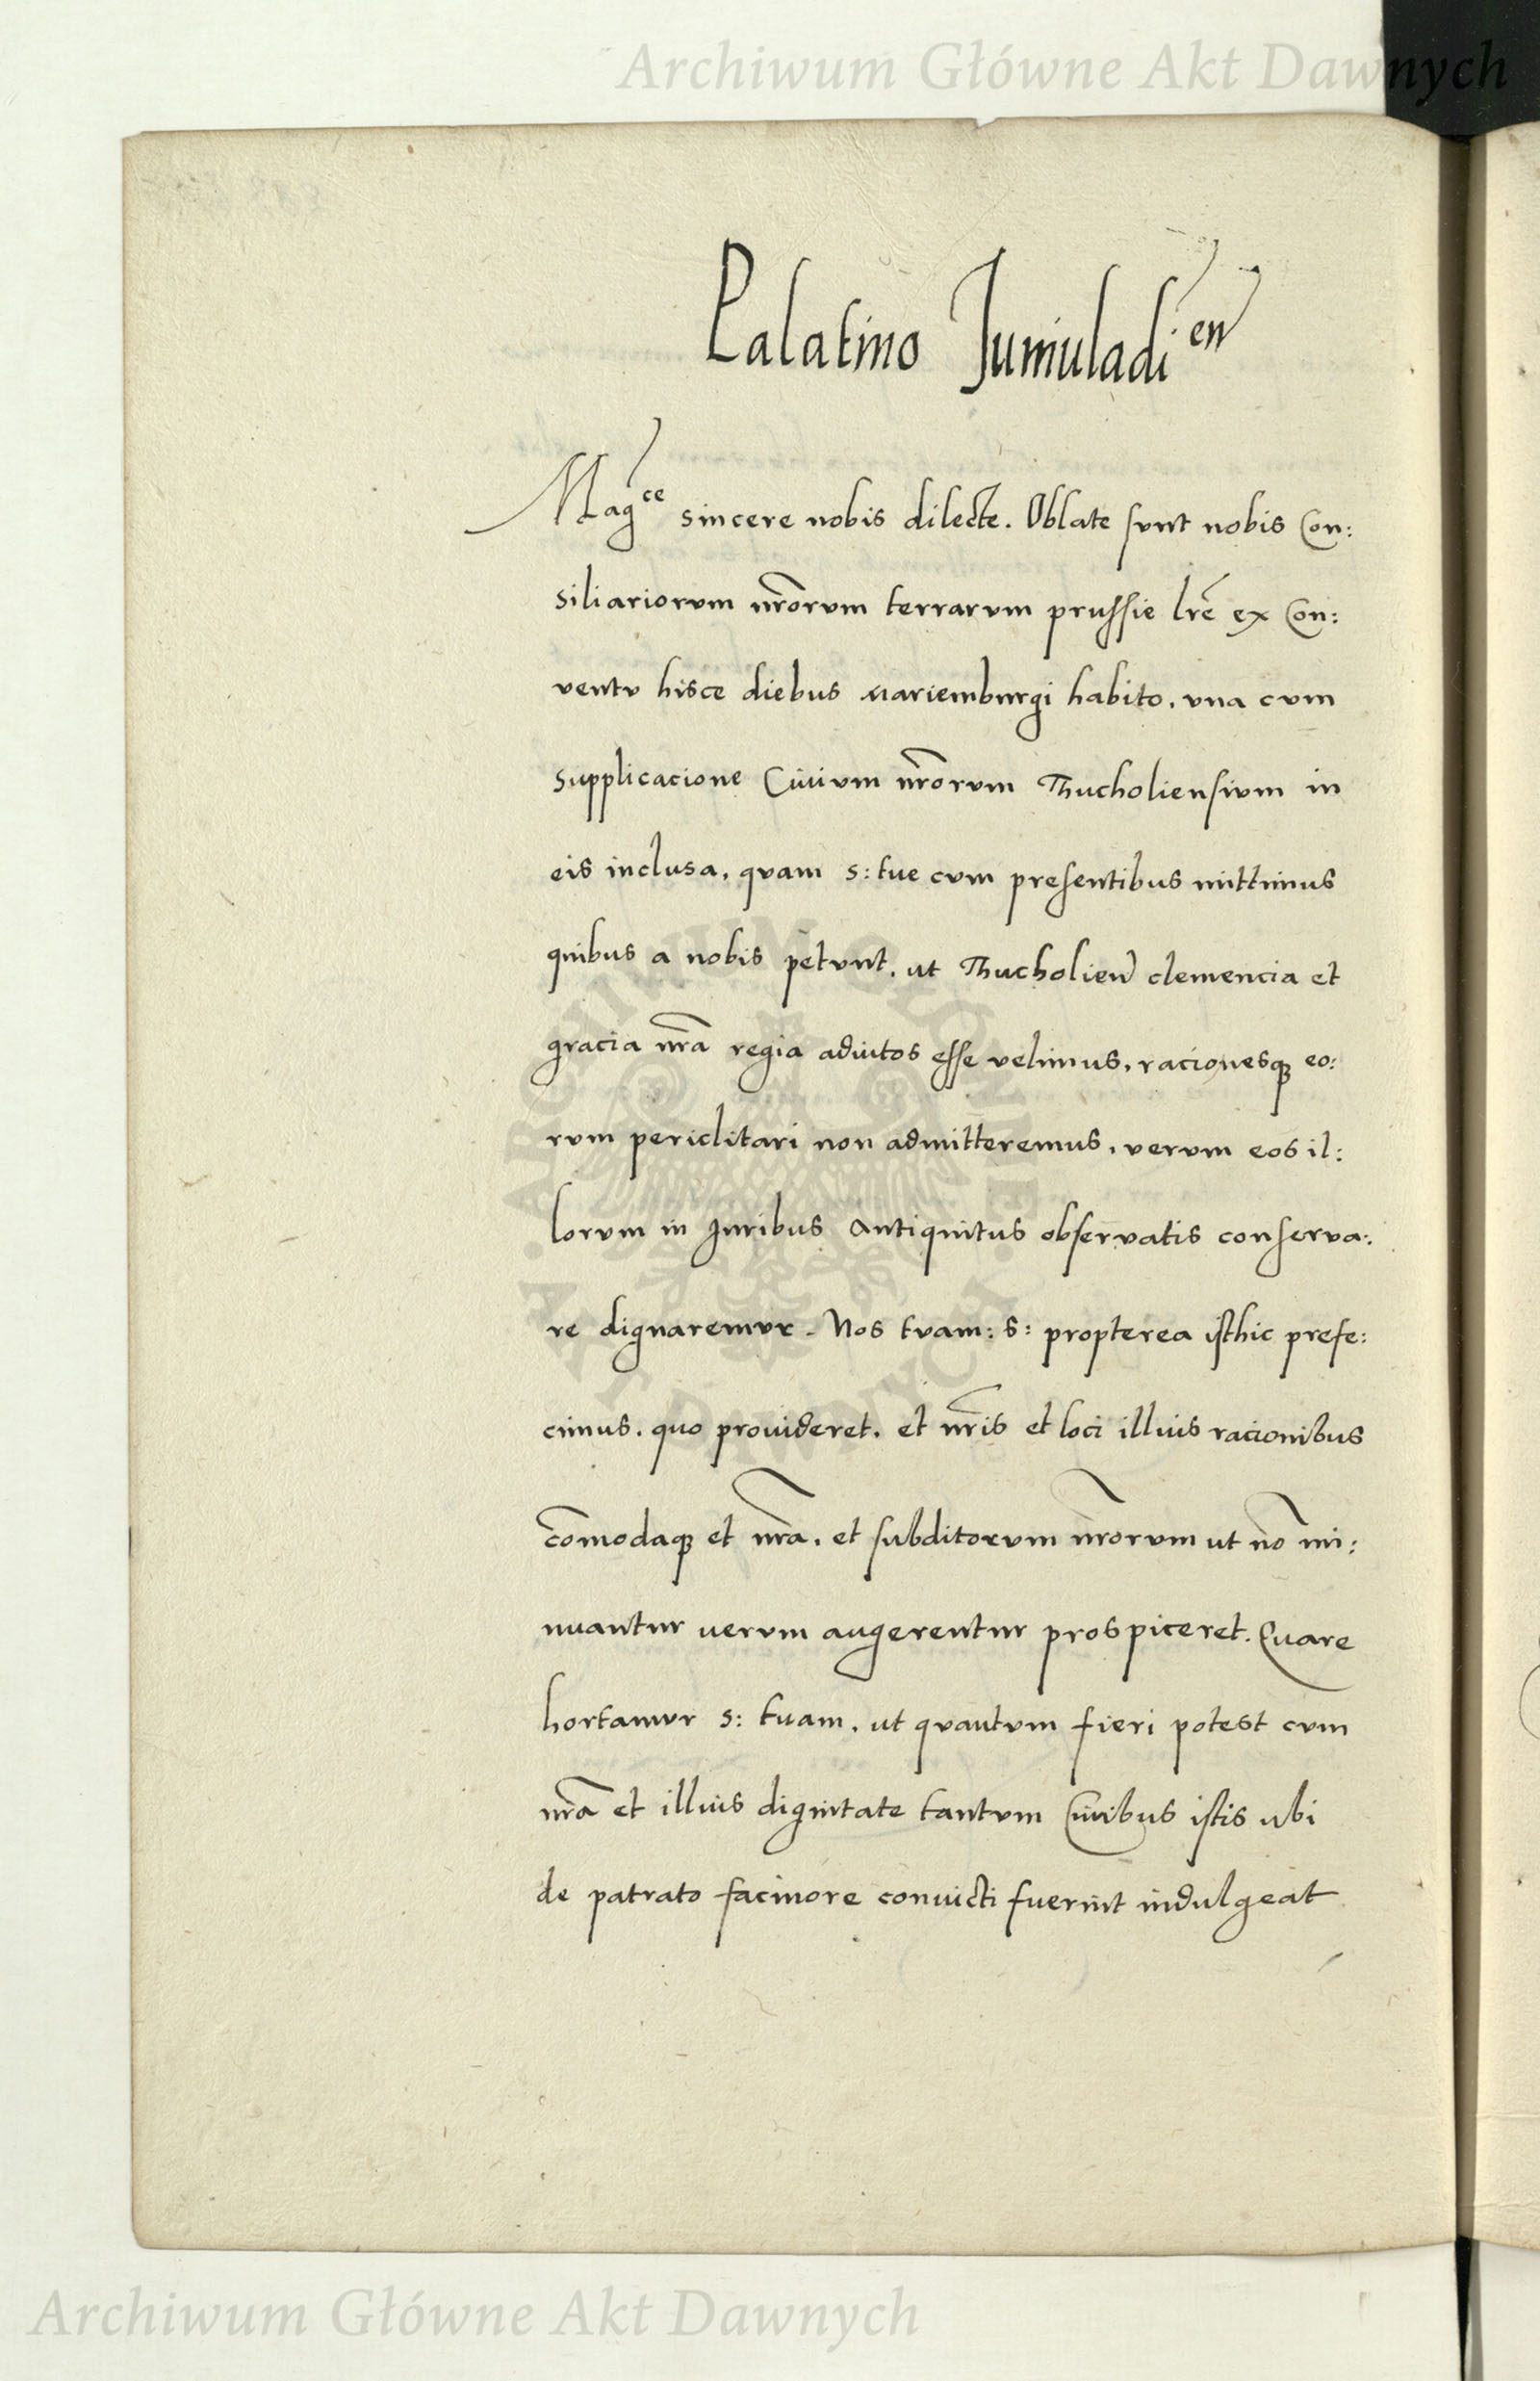 Archiwum Główne Akt Dawnych
Palatino Juniuladien
Mag^ce sincere nobis dilecte. Oblate sunt nobis Con:
siliariorum nr̃orum terrarum prussie lrẽ ex Con:
ventu hisce diebus Mariemburgi habito, una cum
supplicacione Civium nr̃orum Thucholiensium in
eis inclusa, quam s: tue cum presentibus mittimus
quibus a nobis petunt, ut Thucholien clemencia et
gracia nr̃a regia adiutos esse velimus, racionesq; eo:
rum periclitari non admitteremus, verum eos il:
lorum in Juribus Antiquitus observatis conserva:
re dignaremur. Nos tuam: s: propterea isthic prefe:
cimus, quo provideret, et nr̃is et loci illius racionibus
cõmodaq; et nr̃a, et subditorum nr̃orum ut nõ mi:
nuantur verum augerentur prospiceret. Quare
hortamur s: tuam, ut quantum fieri potest cum
nr̃a et illius dignitate tantum Civibus istis ubi
de patrato facinore convicti fuerint indulgeat
ARCHIWUM GŁÓWNE AKT DAWNYCH
Archiwum Główne Akt Dawnych